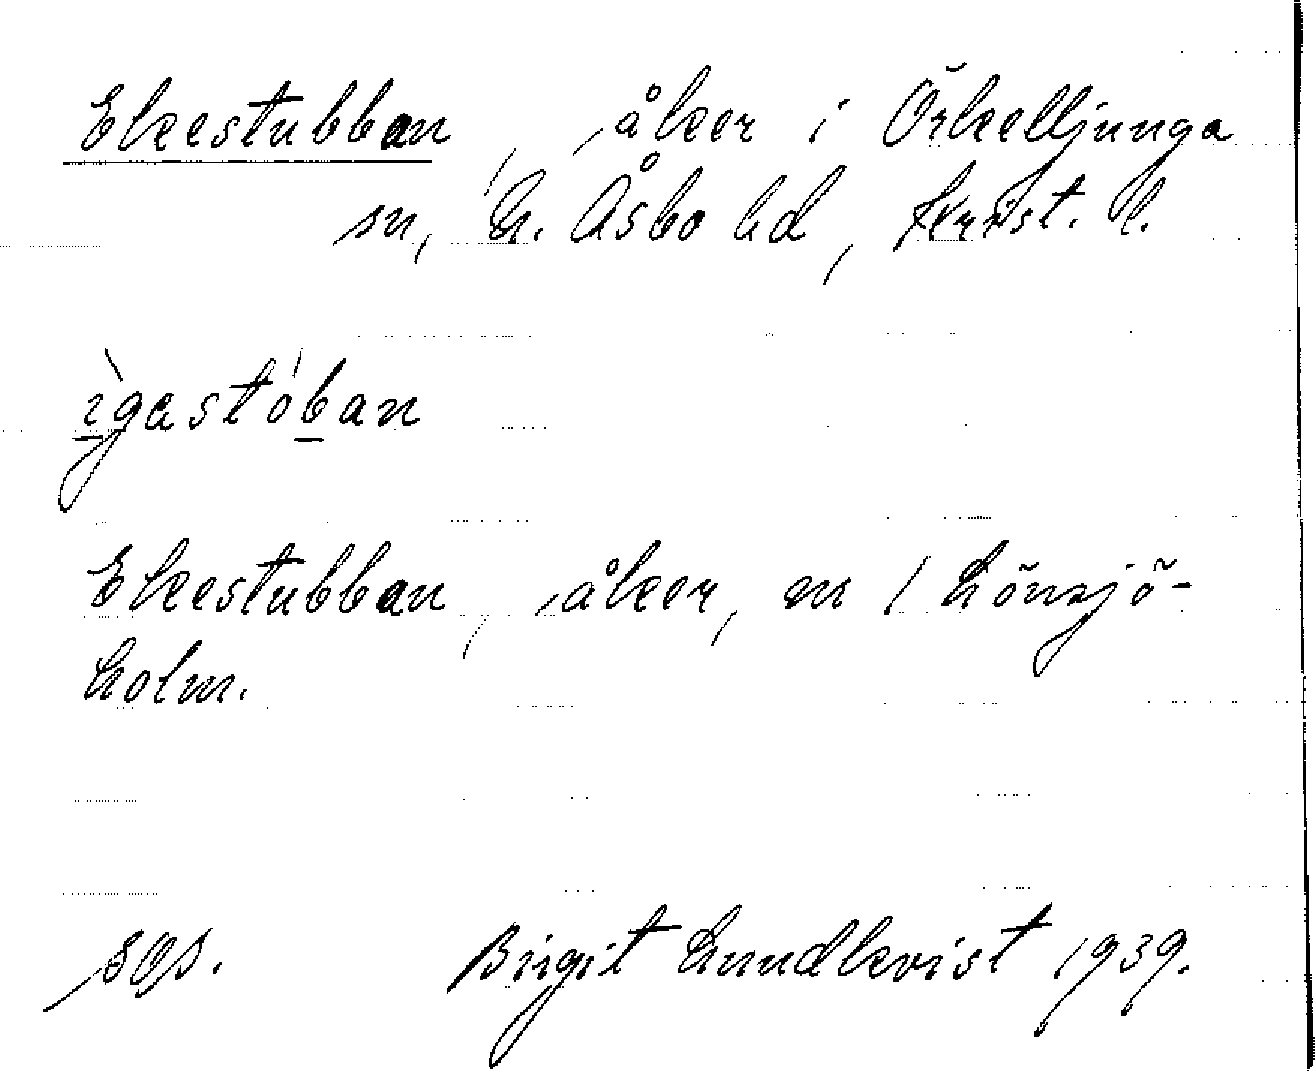 Ekestubban, åker i Örkelljunga
sn, N. Åsbo hd, Krist. l.
ìgastóban
Ekestubban, åker, nr 1 Lönsjö-
holm.
sgs. Birgit Lundkvist 1939.